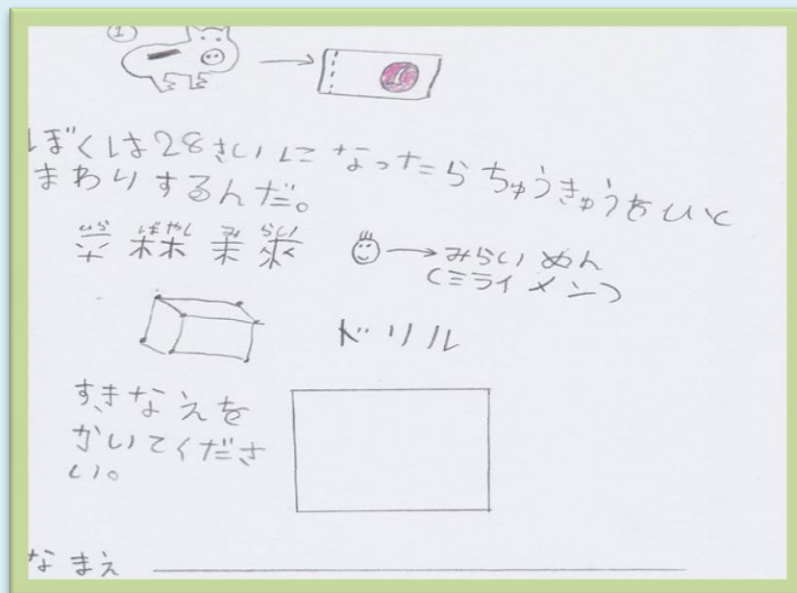 ①
ぼくは28さいになったらちゅうきゅうをひと
まわりするんだ。
ひら ばやし み らい
平林未来 → みらいめん
(ミライメン)
ドリル
すきなえを
かいてくださ
い。
なまえ